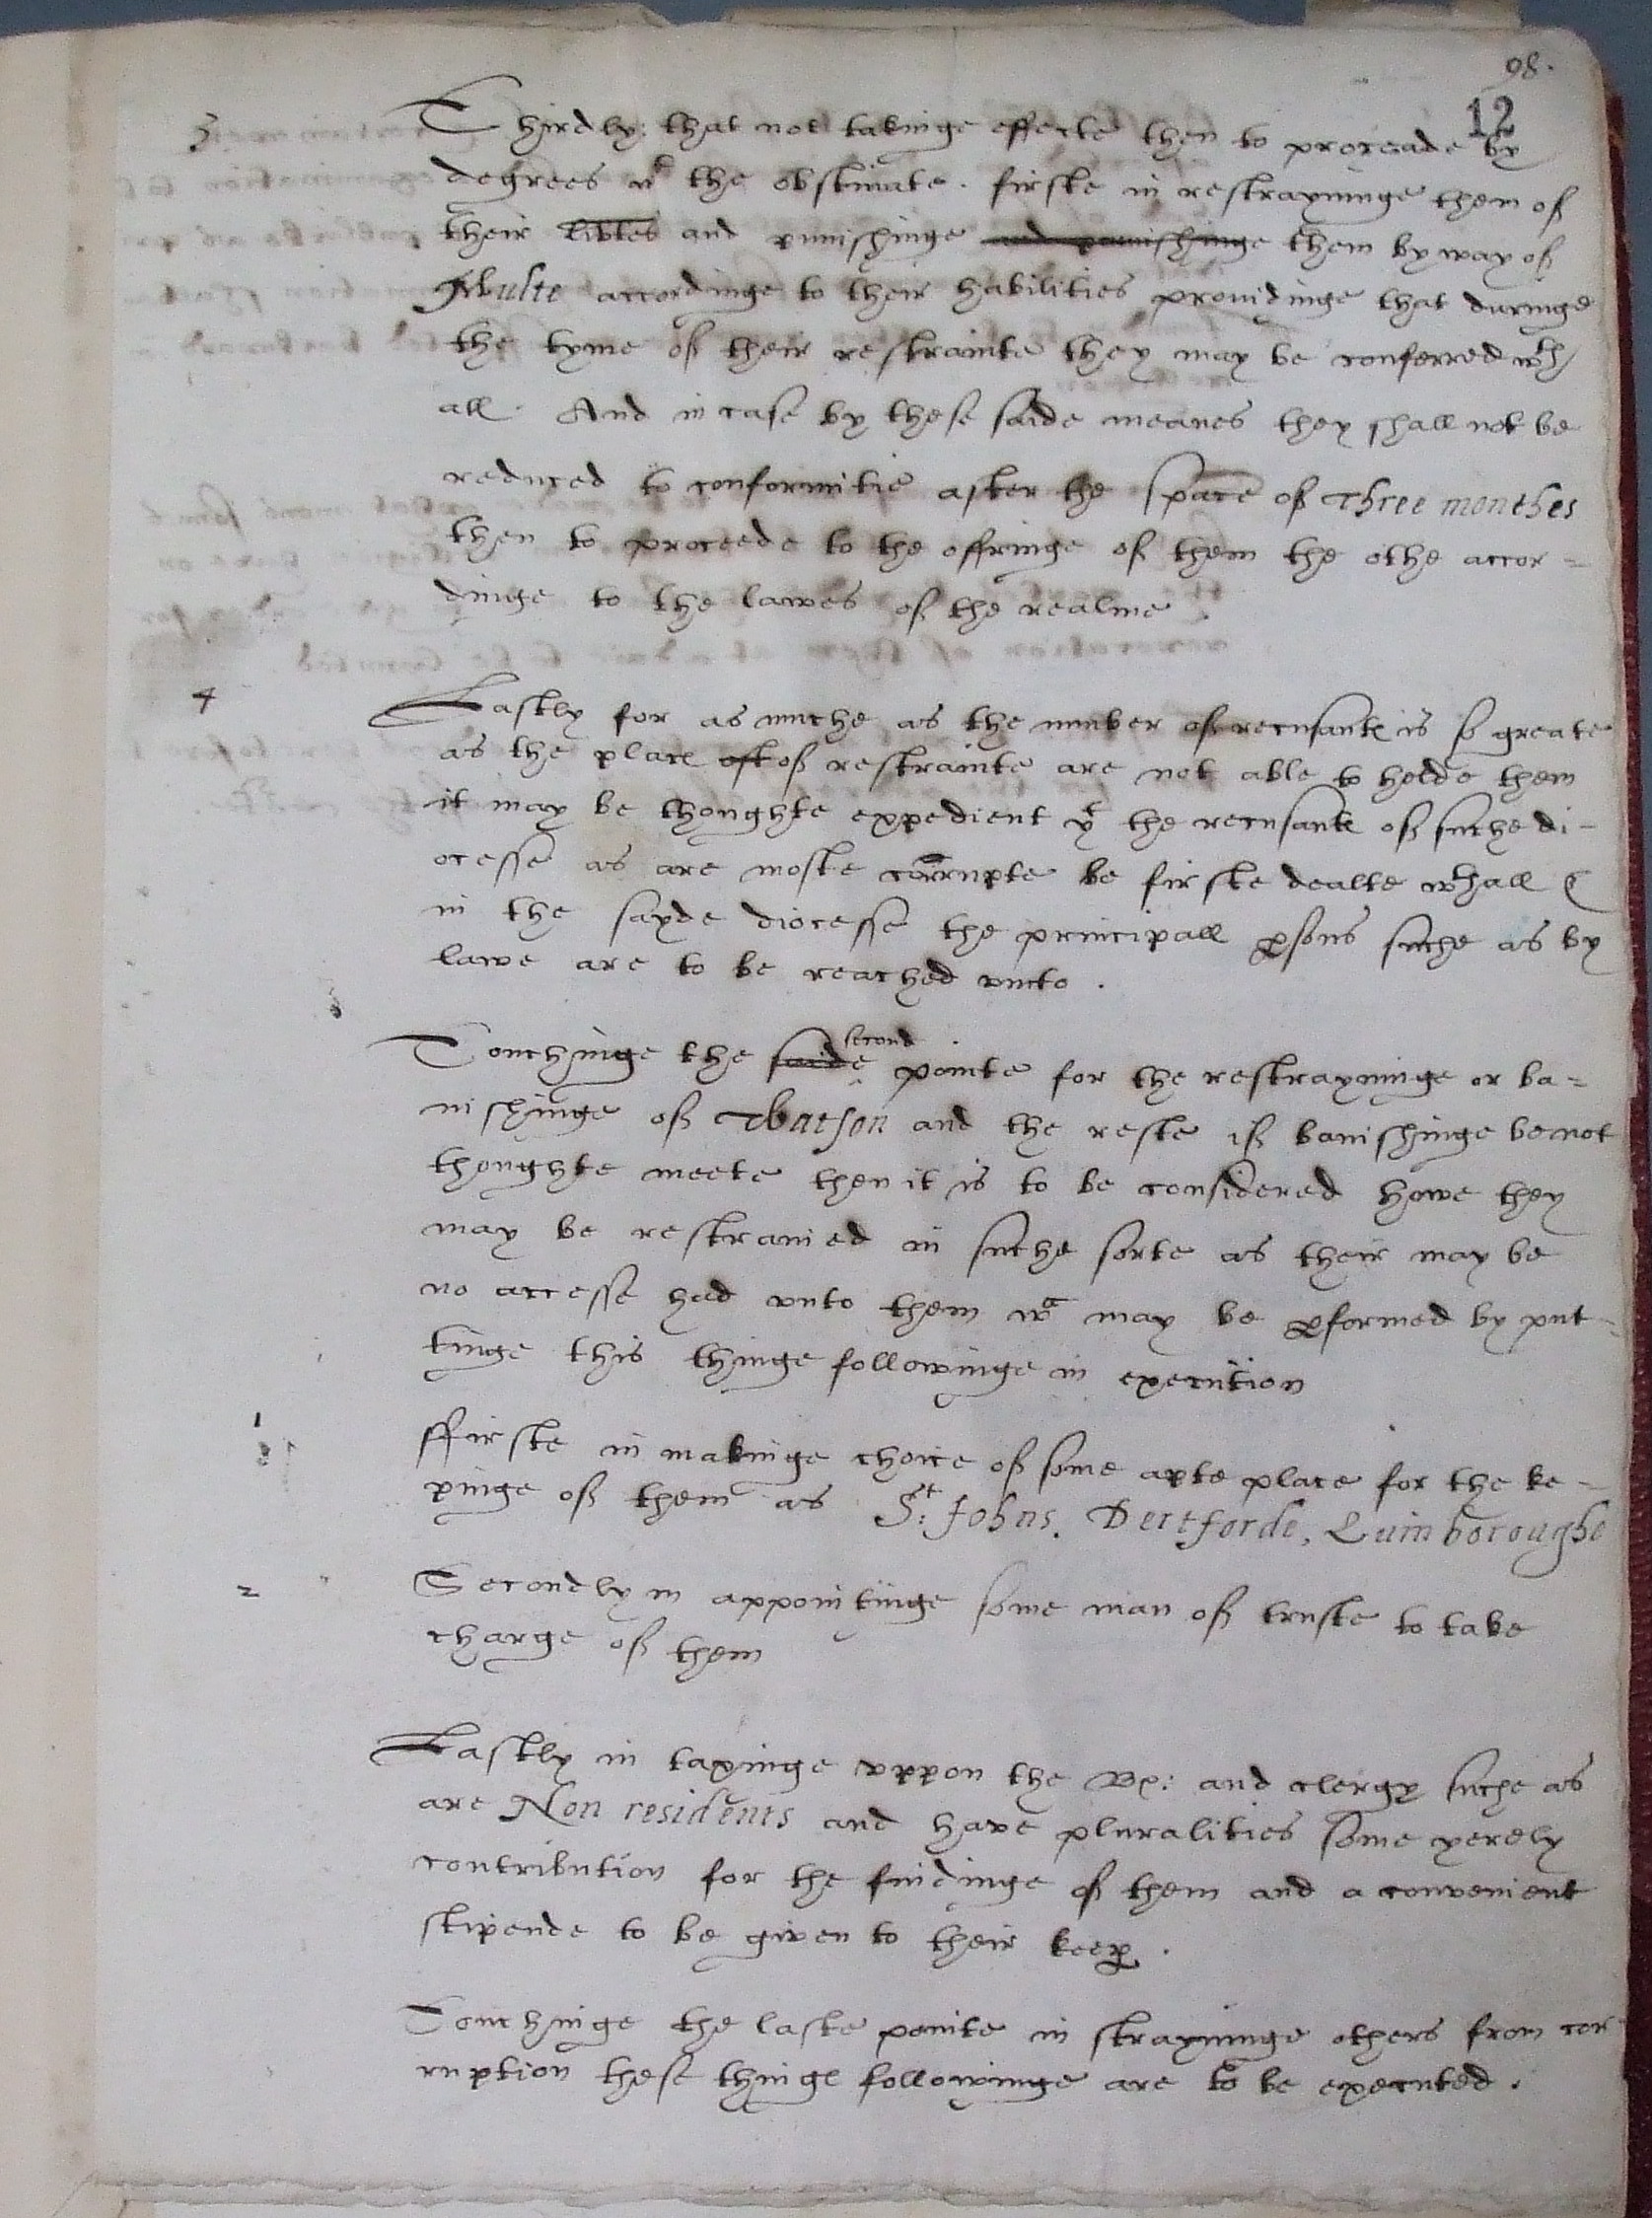 98.
12
3 Thirdly: that not takinge effecte then to proceade by
degrees wt the obstinate. firste in restrayninge them of
their libties and punishinge and punishinge them by way of
Multe accordinge to their habilities providinge that duringe
the tyme of their restrainte they may be conferred wth
all. And in case by these saide meanes they shall not be
reduced to conformitie after the space of three monthes
then to proceede to the offringe of them the othe accor=
dinge to the lawes of the realme.
4 Lastly for as muche as the nunber of recusantes is so greate
as the places of restrainte are not able to holde them
it may be thoughte expedient yt the recusantes of suche di-
ocesse as are moste corrupte be firste dealte wthall &
in the sayde diocesse the principall psons suche as by
lawe are to be reached vnto.
Touchinge the saide second pointe for the restrayninge or ba=
nishinge of Watson and the reste if banishinge be not
thoughte meete then it is to be considered howe they
may be restrained in suche sorte as their may be
no accesse had vnto them wc may be pformed by put=
tinge this thinge followinge in execution
1 ffirste in makinge choice of some apte place for the ke-
pinge of them as St: Johns. Dertforde, Quinboroughe
2 Secondly in appointinge some man of truste to take
charge of them
Lastly in taxinge vppon the Bp: and clergy suche as
are Non residents and have pluralities some yerely
contribution for the findinge of them and a convenient
stipende to be given to their keep.
Touchinge the laste pointe in strayninge others from cor
ruption these thinges followinge are to be executed.